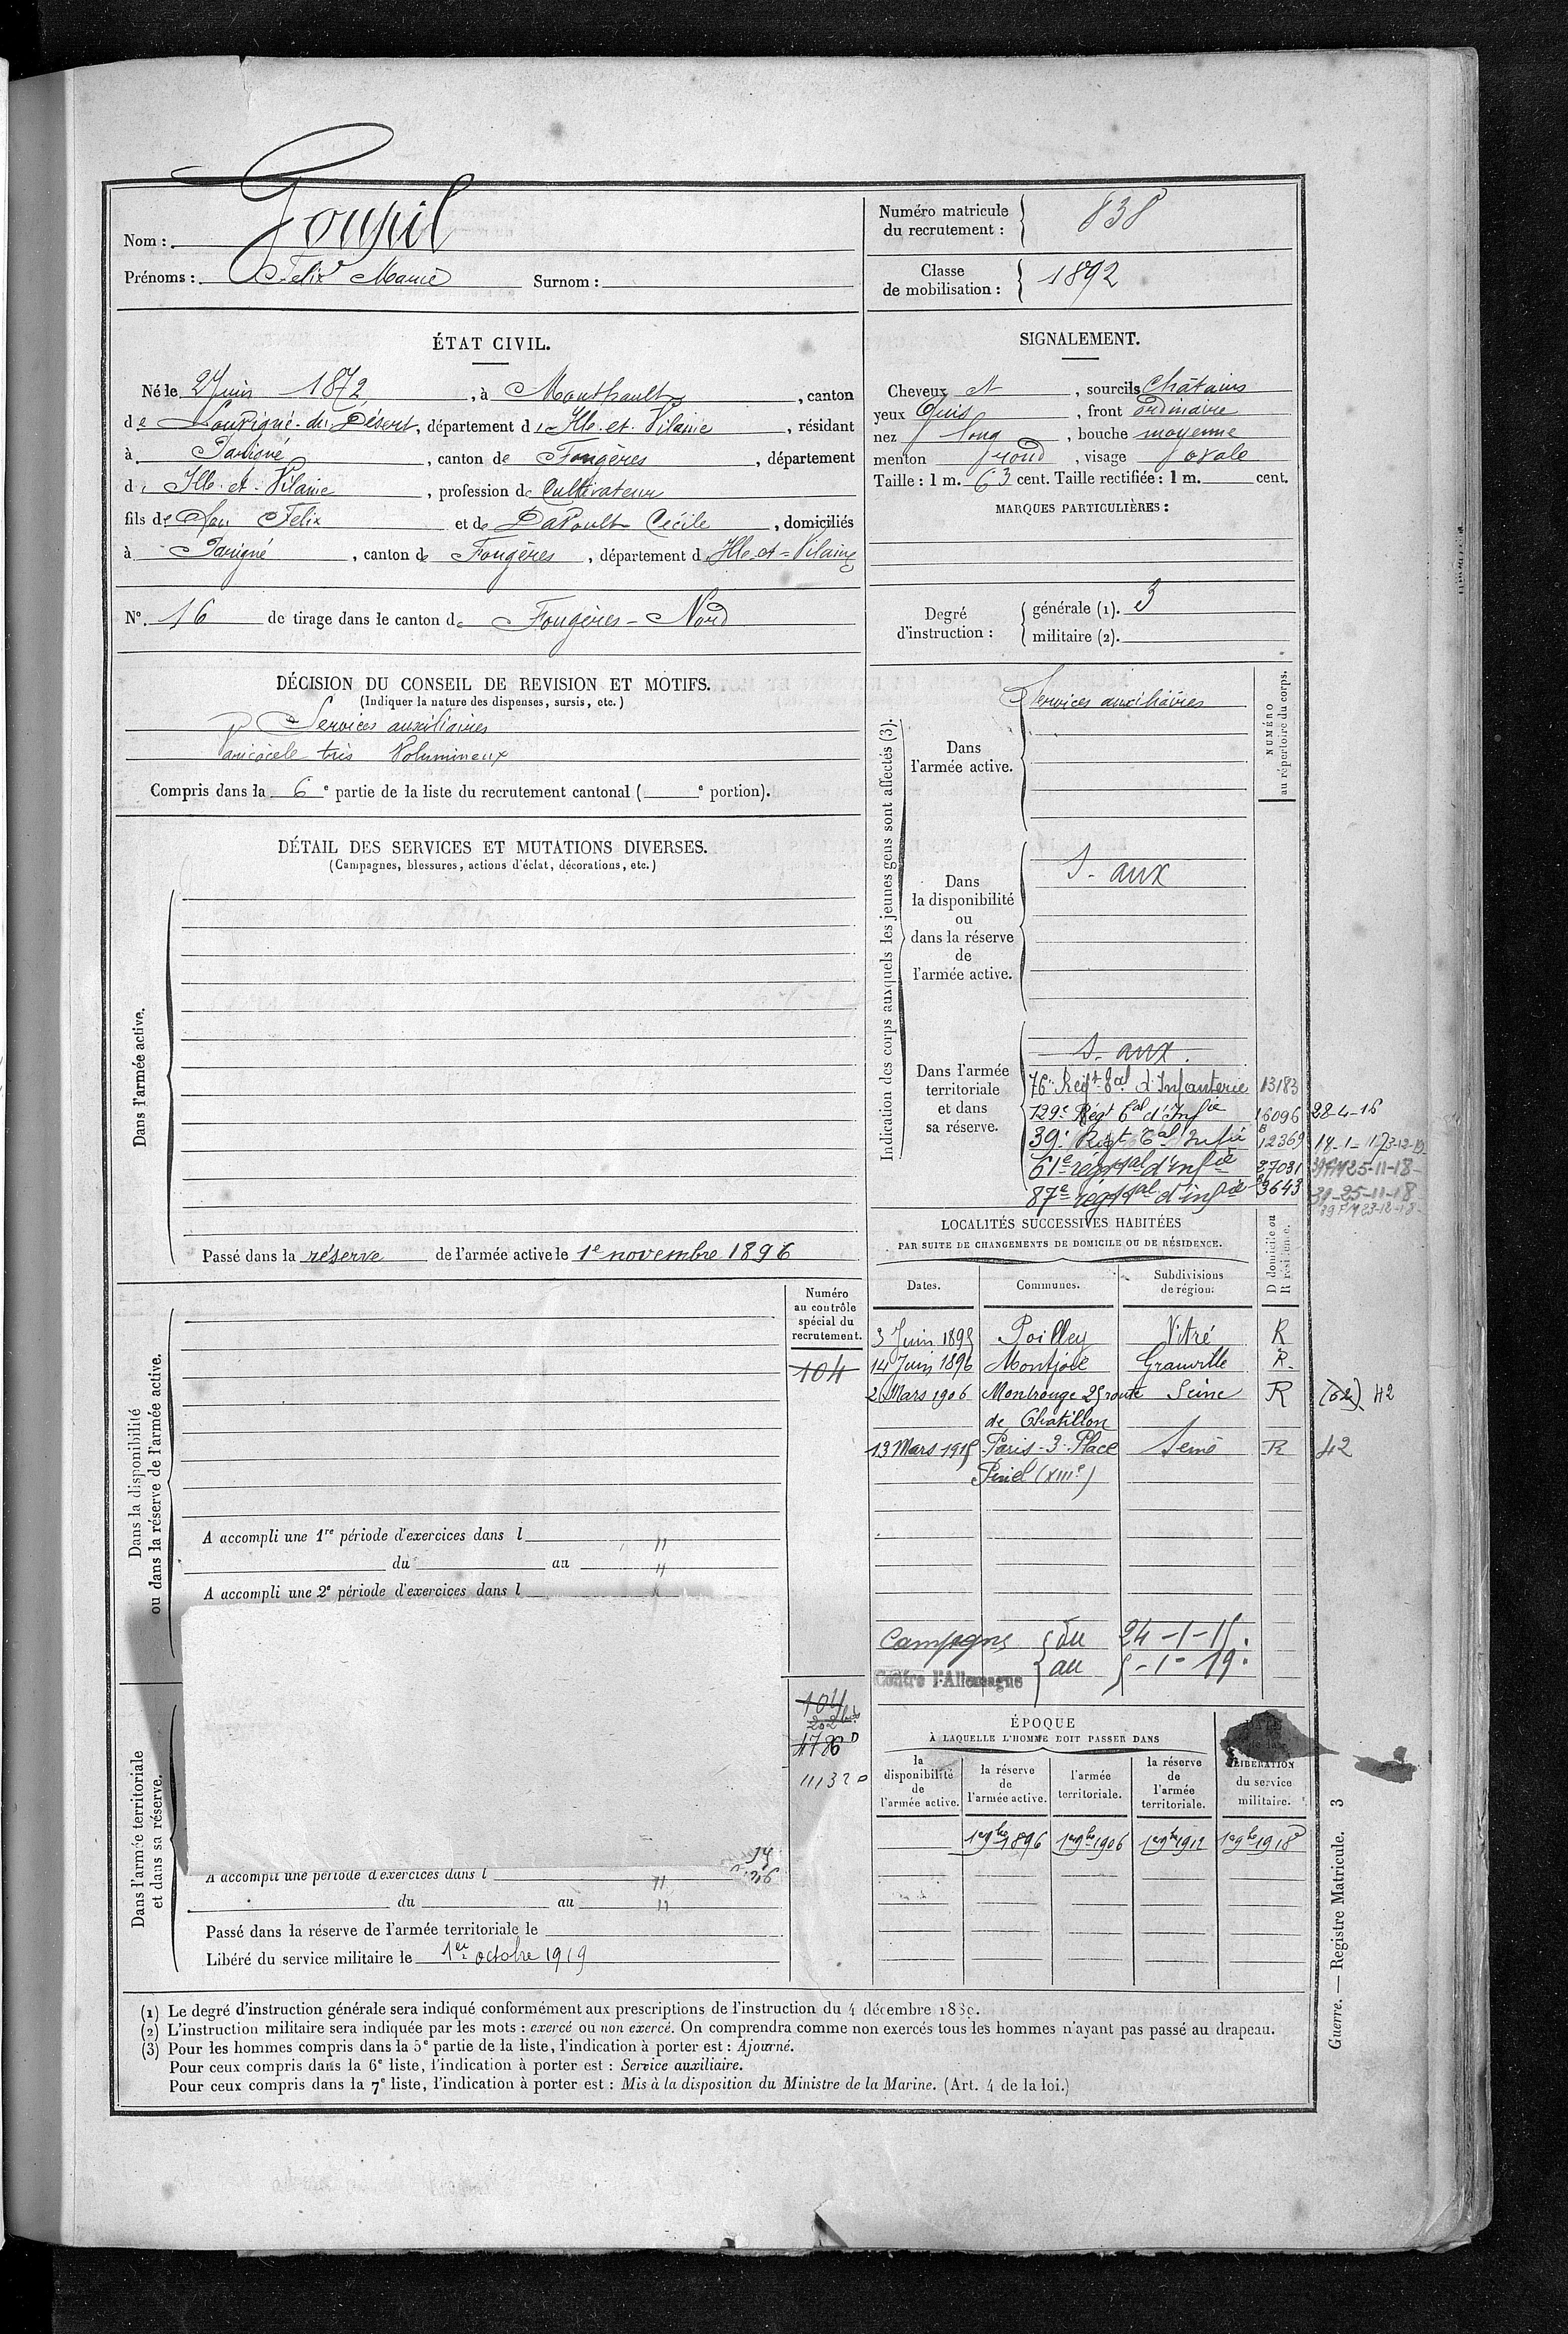 Nom : Goupil
Prénoms : Felix Marie Surnom :
Numéro matricule du recrutement : 838
Classe de mobilisation : 1892
ÉTAT CIVIL.
Né le 2 Juin 1872, à Monthault, canton
de Louvigné-du-Désert, département d'Ille-et-Vilaine, résidant
à Parigné, canton de Fougères, département
d'Ille-et-Vilaine, profession de Cultivateur
fils de feu Felix et de Davoult Cécile, domiciliés
à Parigné, canton de Fougères, département d'Ille-et-Vilaine
N°. 16 de tirage dans le canton de Fougères-Nord
SIGNALEMENT.
Cheveux et, sourcils Châtains
yeux Gris, front ordinaire
nez long, bouche moyenne
menton rond, visage ovale
Taille : 1 m. 63 cent. Taille rectifiée : 1 m. cent.
MARQUES PARTICULIÈRES :
Degré d'instruction :
générale (1). 3
militaire (2).
DÉCISION DU CONSEIL DE REVISION ET MOTIFS.
(Indiquer la nature des dispenses, sursis, etc.)
Services auxiliaires
Varicocèle très Volumineux
Compris dans la 6e partie de la liste du recrutement cantonal ( e portion).
DÉTAIL DES SERVICES ET MUTATIONS DIVERSES.
(Campagnes, blessures, actions d'éclat, décorations, etc.)
Dans l'armée active.
Passé dans la réserve de l'armée active le 1e novembre 1896
Indication des corps auxquels les jeunes gens sont affectés (3).
NUMÉRO au répertoire du corps.
Dans l'armée active.
Services auxiliaires
Dans la disponibilité ou dans la réserve de l'armée active.
S. aux
Dans l'armée territoriale et dans sa réserve.
S. aux.
76e Régt tal d'Infanterie 13183
129e Régt tal d'Infie 16096 28-4-16
39e Régt tal Infie 12369
61e régt tal d'infie 27031 25-11-18
87e régt tal d'infie 3643 31-25-11-18
LOCALITÉS SUCCESSIVES HABITÉES
PAR SUITE DE CHANGEMENTS DE DOMICILE OU DE RÉSIDENCE.
D domicile ou R résidence.
Dates. Communes. Subdivisions de région.
3 Juin 1895 Poilley Vitré R
14 Juin 1896 Montjoie Granville R.
2 Mars 1906 Montrouge 25 route Seine R (62) 42
de Chatillon
13 Mars 1915 Paris-3-Place Seine R 42
Pinel (XIIIe)
Campagne du 24-1-15.
Contre l'Allemagne au 5-1-19.
Dans la disponibilité ou dans la réserve de l'armée active.
Numéro au contrôle spécial du recrutement.
104
A accompli une 1re période d'exercices dans l "
du au "
A accompli une 2e période d'exercices dans l
Dans l'armée territoriale et dans sa réserve.
104
202 bis
4786 D
11132 D
A accompli une période d'exercices dans l "
du au "
Passé dans la réserve de l'armée territoriale le
Libéré du service militaire le 1er octobre 1919
ÉPOQUE
À LAQUELLE L'HOMME DOIT PASSER DANS
la disponibilité de l'armée active.
la réserve de l'armée active.
l'armée territoriale.
la réserve de l'armée territoriale.
LIBÉRATION du service militaire.
1er 9bre 1896 1er 9bre 1906 1er 9bre 1912 1er 9bre 1918
(1) Le degré d'instruction générale sera indiqué conformément aux prescriptions de l'instruction du 4 décembre 1889.
(2) L'instruction militaire sera indiquée par les mots : exercé ou non exercé. On comprendra comme non exercés tous les hommes n'ayant pas passé au drapeau.
(3) Pour les hommes compris dans la 5e partie de la liste, l'indication à porter est : Ajourné.
Pour ceux compris dans la 6e liste, l'indication à porter est : Service auxiliaire.
Pour ceux compris dans la 7e liste, l'indication à porter est : Mis à la disposition du Ministre de la Marine. (Art. 4 de la loi.)
Guerre. — Registre Matricule. 3